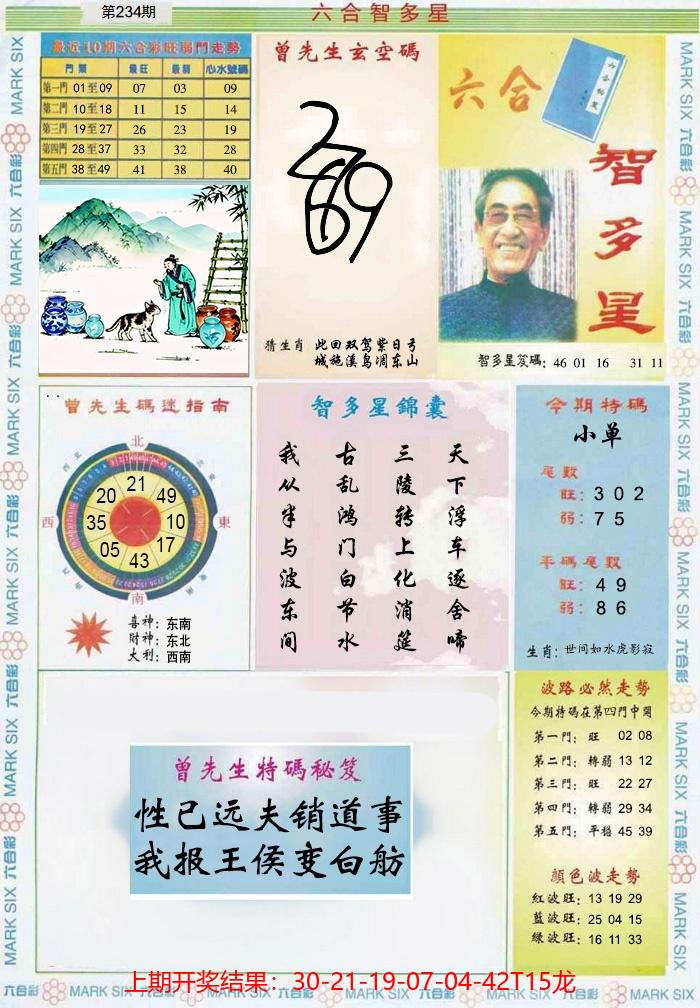 第234期
六合智多星
最近10期六合彩旺弱門走勢
門類 最旺 最弱 心水號碼
第一門 01至09 07 03 09
第二門 10至18 11 15 14
第三門 19至27 26 23 19
第四門 28至37 33 32 28
第五門 38至49 41 38 40
曾先生玄空碼
猜生肖 此回双驾紫日兮
城施溪鸟凋东山
六合
智多星
智多星笈碼: 46 01 16 31 11
曾先生碼迷指南
北
西
東
南
21
49
10
17
43
05
35
20
喜神: 东南
財神: 东北
大利: 西南
智多星錦囊
天下浮车逐舍啼
三陵转上化消筵
古乱鸿门白节水
我从半与波东间
今期特碼
小单
尾數
旺: 3 0 2
弱: 7 5
平碼尾數
旺: 4 9
弱: 8 6
生肖: 世间如水虎影寂
曾先生特碼秘笈
性已远夫销道事
我报王侯变白舫
波路必然走勢
今期特碼在第四門中開
第一門: 旺 02 08
第二門: 轉弱 13 12
第三門: 旺 22 27
第四門: 轉弱 29 34
第五門: 平穩 45 39
顏色波走勢
紅波旺: 13 19 29
藍波旺: 25 04 15
绿波旺: 16 11 33
上期开奖结果：30-21-19-07-04-42T15龙
MARK SIX 六合彩